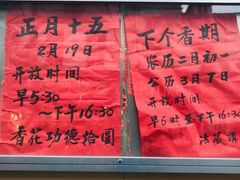 正月十五
2月19日
开放时间
早5:30
～下午16:30
香花功德拾圆
下个香期
农历二月初一
公历3月7日
开放时间
早6时至下午16:30
法藏講寺